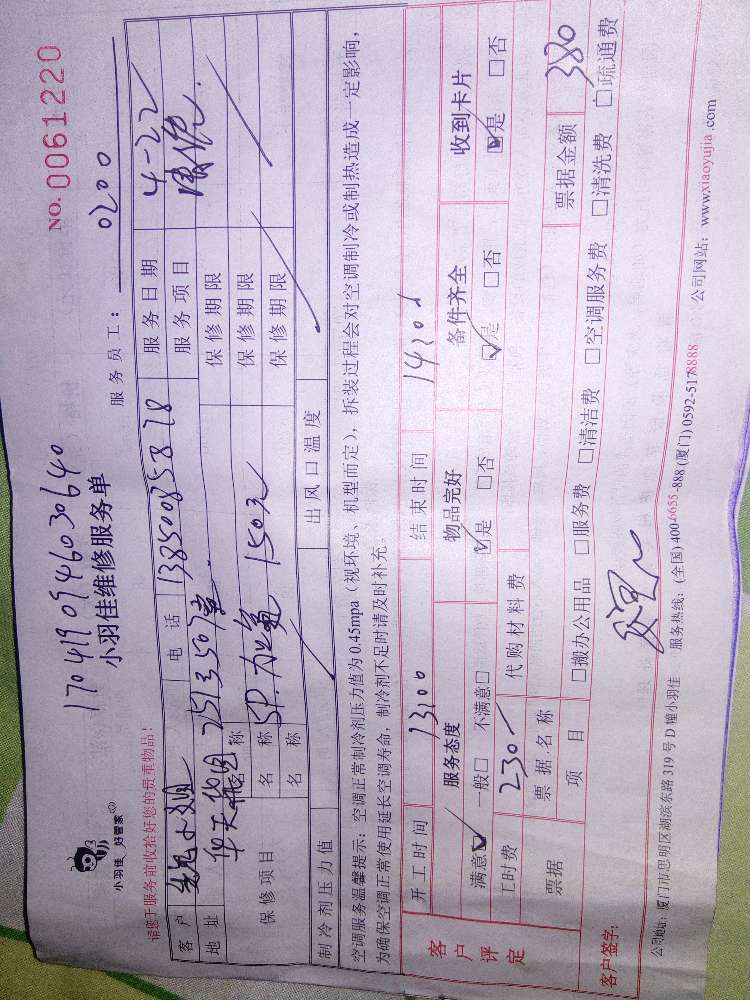 NO. 0061220
1704190946030640
小羽佳 好管家
小羽佳维修服务单
服务员工： 0200
请您于服务前收拾好您的贵重物品！
客户 电话 13850085878 服务日期 4-22
地址 服务项目
保修项目 名称 保修期限
名称 5P 150元 保修期限
名称 保修期限
制冷剂压力值 出风口温度
空调服务温馨提示：空调正常制冷剂压力值为0.45mpa（视环境、机型而定），拆装过程会对空调制冷或制热造成一定影响，
为确保空调正常使用延长空调寿命，制冷剂不足时请及时补充。
客户评定
开工时间 13:00 结束时间
服务态度 物品完好 备件齐全 收到卡片
满意☑ 一般□ 不满意□ ☑是 □否 ☑是 □否 ☑是 □否
工时费 230 代购材料费
票据 票据名称 票据金额 380
项目 □搬办公用品 □服务费 □清洁费 □空调服务费 □清洗费 □疏通费
客户签字：
公司地址：厦门市思明区湖滨东路319号D幢小羽佳 服务热线：(全国)400-6655-888 (厦门)0592-5178888 公司网站：www.xiaoyujia.com